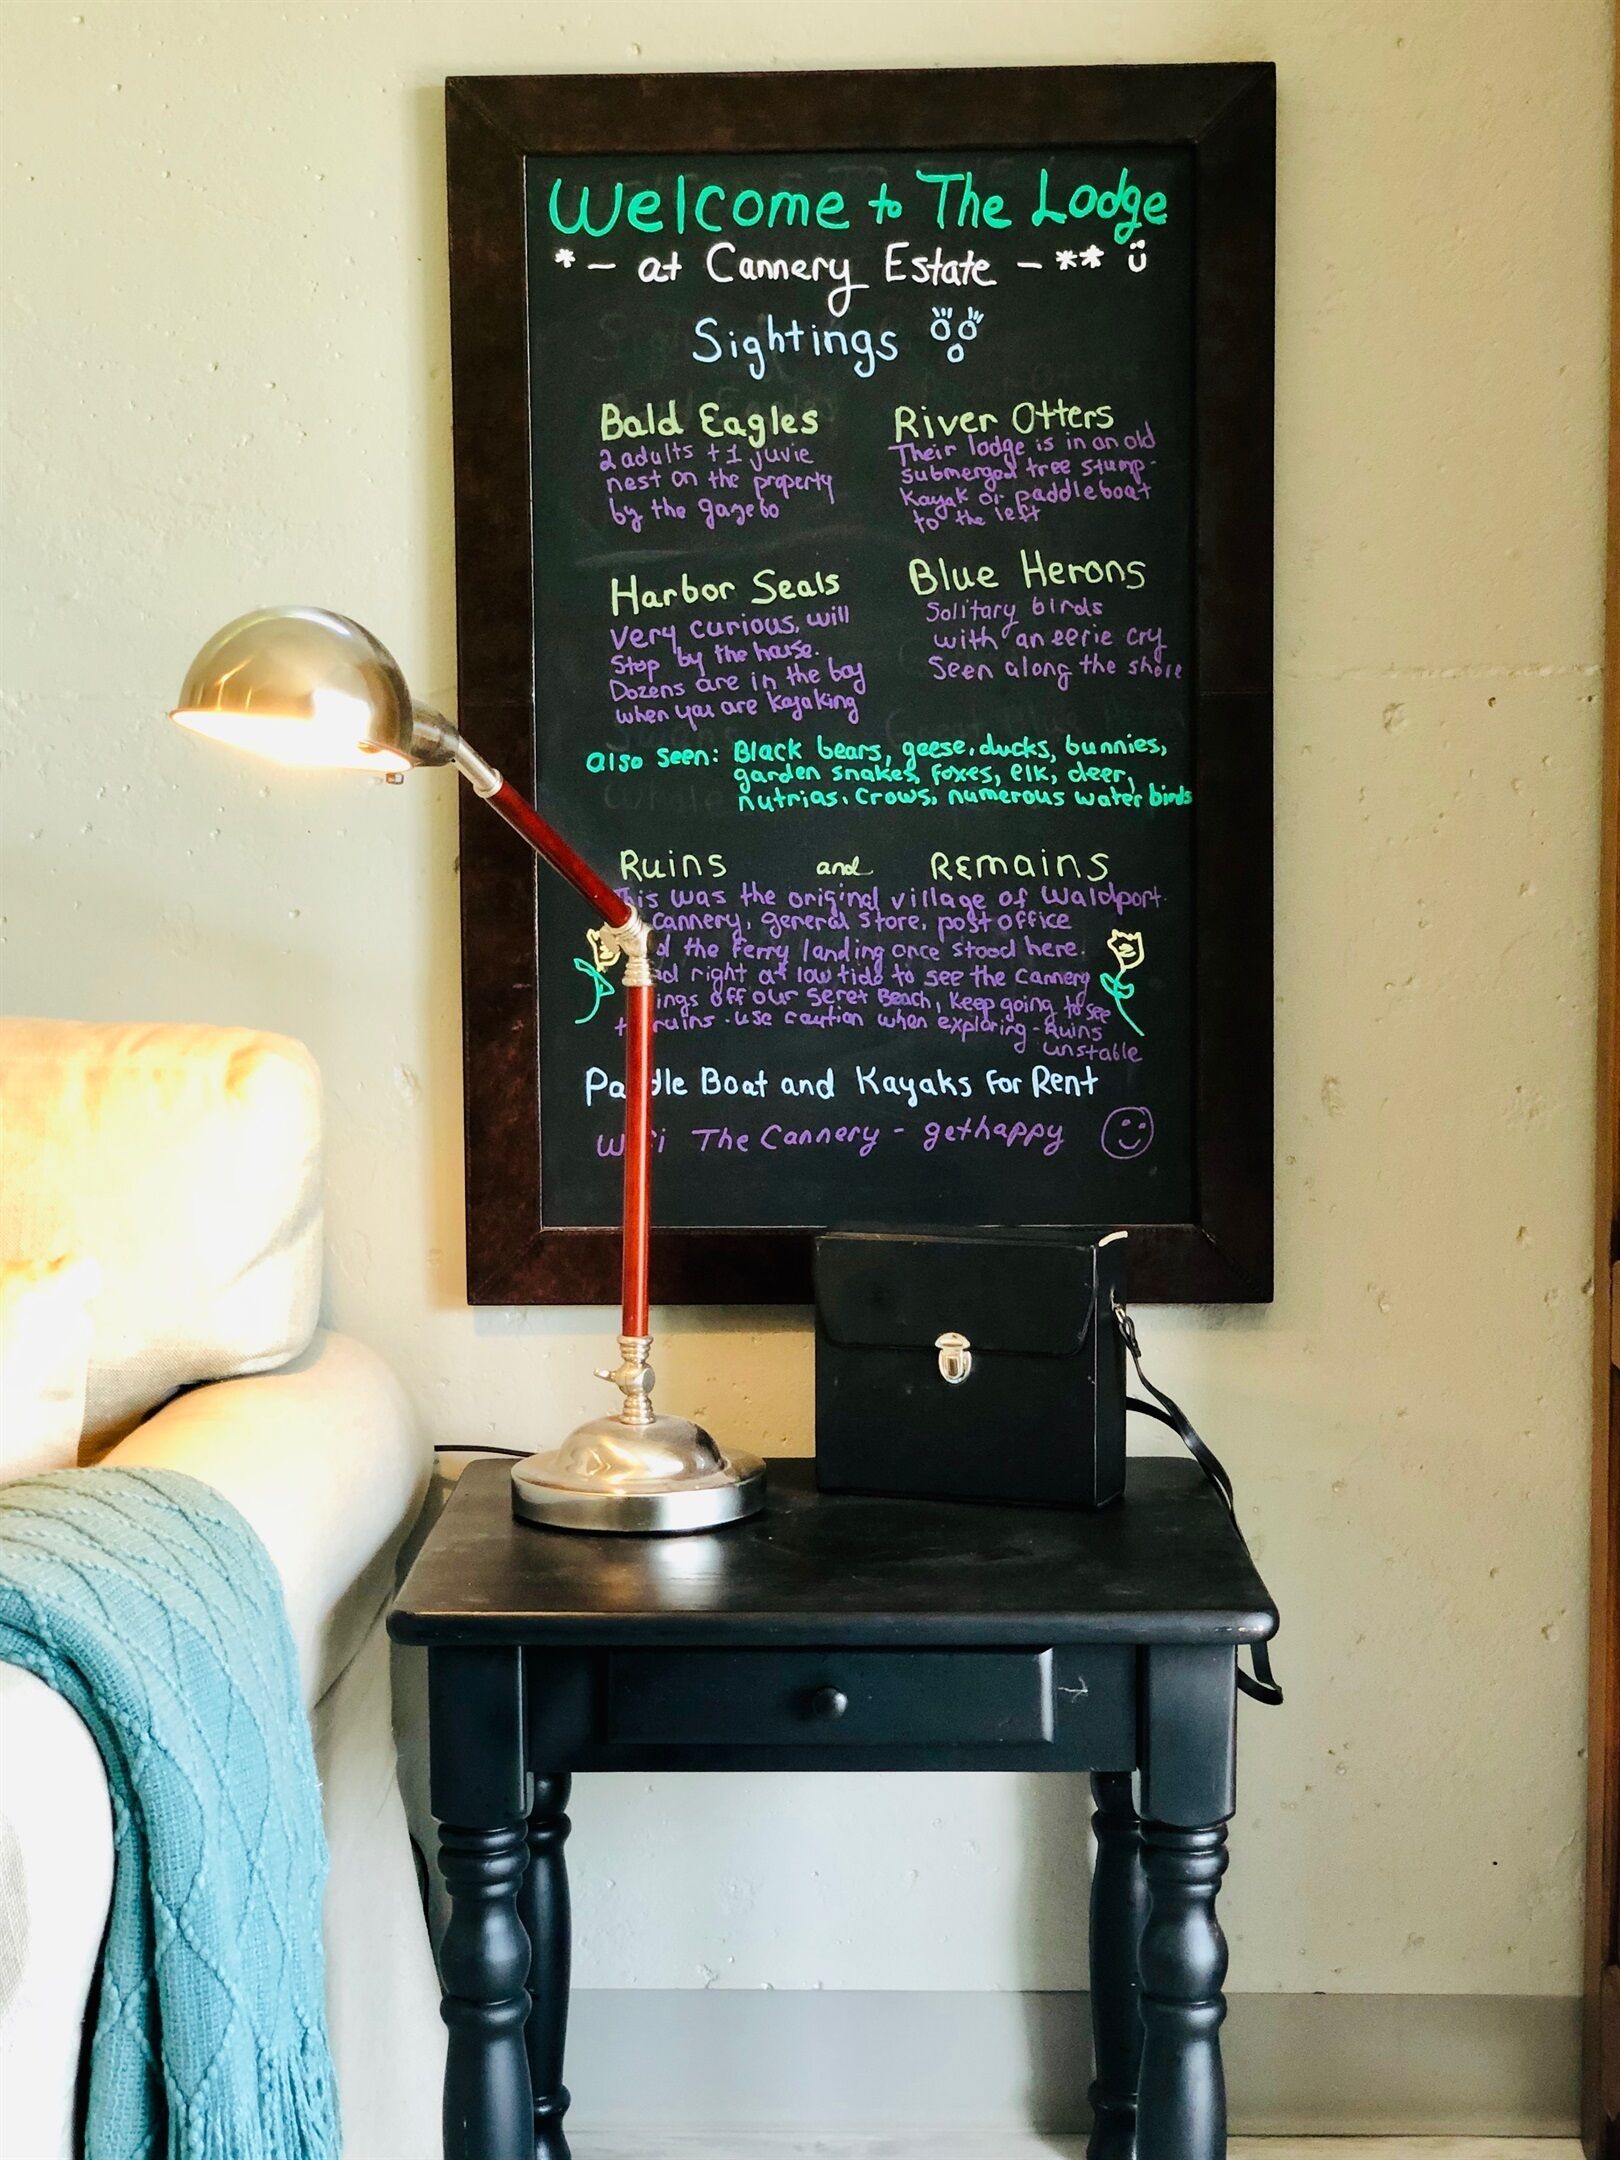 Welcome to The Lodge
* - at Cannery Estate - **
Sightings
Bald Eagles
2 adults + 1 juvie
nest on the property
by the gazebo
River Otters
Their lodge is in an old
submerged tree stump-
Kayak or paddleboat
to the left
Harbor Seals
very curious, will
Stop by the house.
Dozens are in the bay
when you are kayaking
Blue Herons
Solitary birds
with an eerie cry
Seen along the shore
also seen: Black bears, geese, ducks, bunnies,
garden snakes, foxes, elk, deer,
nutrias, crows, numerous water birds
Ruins and Remains
This was the original village of Waldport.
cannery, general store, post office
the Ferry landing once stood here.
right at low tide to see the cannery
off our Seret Beach, Keep going to see
ruins. use caution when exploring - Ruins
unstable
Paddle Boat and Kayaks For Rent
WiFi The Cannery - gethappy